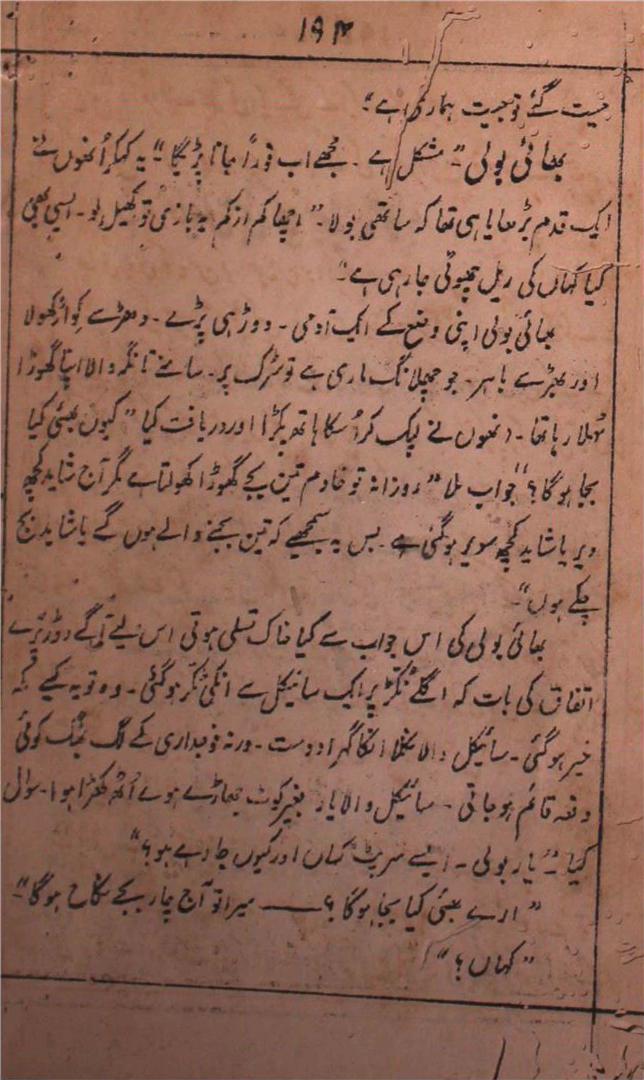 ۱۹۴
جیت گئے تو جیت ہماری ہے"
بھائی بولی "مشکل ہے۔ مجھے اب فوراً جانا پڑیگا" یہ کہکر اُنھوں نے
ایک قدم بڑھایا ہی تھا کہ ساتھی بولا۔ "اچھا کم از کم یہ بازی تو کھیل لو۔ ایسی بھی
کیا کہاں کی ریل چھوٹی جا رہی ہے"
بھائی بولی اپنی وضع کے ایک آدمی۔ دوڑ ہی پڑے۔ دھڑ سے کواڑ کھولا
اور بھڑ سے باہر۔ جو چھلانگ ماری ہے تو سڑک پر۔ سامنے تانگہ والا اپنا گھوڑا
ٹہلا رہا تھا۔ انھوں نے لپک کر اُسکا ہاتھ پکڑا اور دریافت کیا "کیوں بھئی کیا
بجا ہوگا؟" جواب ملا "روزانہ تو خادم تین بجے گھوڑا کھولتا ہے مگر آج شاید کچھ
دیر یا شاید کچھ سویر ہوگئی ہے۔ بس یہ سمجھیے کہ تین بجنے والے ہوں گے یا شاید بج
چکے ہوں"۔
بھائی بولی کی اس جواب سے کیا خاک تسلی ہوتی اس لیے آگے دوڑ پڑے
اتفاق کی بات کہ اگلے نکڑ پر ایک سائیکل سے انکی ٹکر ہوگئی۔ وہ تو یہ کہیے کہ
خیر ہوگئی۔ سائیکل والا نکلا انکا گہرا دوست۔ ورنہ فوجداری کے لگ بھگ کوئی
دفعہ قائم ہو جاتی۔ سائیکل والا یار بغیر کوٹ جھاڑے ہوے اُٹھ کھڑا ہوا۔ سوال
کیا۔ "یار بولی۔ ایسے سرپٹ کہاں اور کیوں جا رہے ہو؟"
"ارے بھئی کیا بجا ہوگا؟ —— میرا تو آج چار بجے نکاح ہوگا"
"کہاں؟"